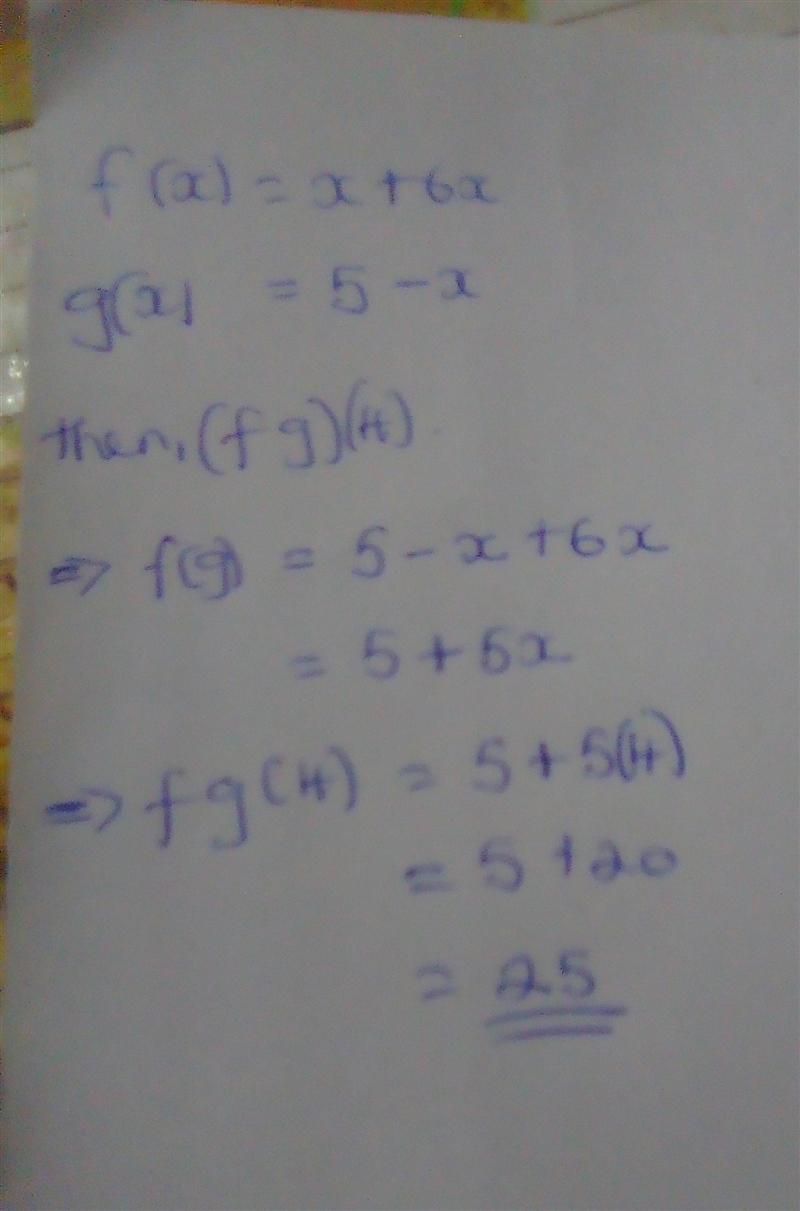 f(x) = x + 6x
g(x) = 5 - x
then, (fg)(4).
=> f(g) = 5 - x + 6x
= 5 + 5x
=> fg(4) = 5 + 5(4)
= 5 + 20
= 25